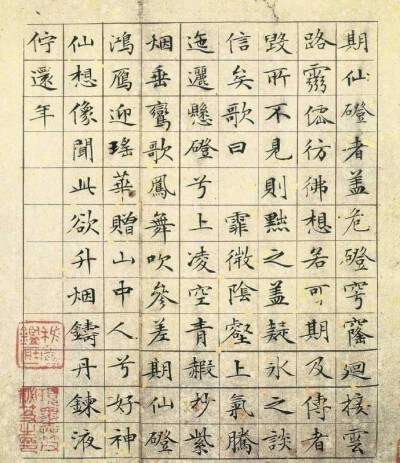 期仙磴者盖危磴穹窿迴接雲
路靈僊彷彿想若可期及儒者
毀所不見則黜之盖疑冰之談
信矣歌曰 霏微陰壑上氣騰
迤邐懸磴兮上凌空青赮杪紫
烟垂鸞歌鳳舞吹參差期仙磴
鴻鴈迎瑤華贈山中人兮好神
仙想像聞此欲升烟鑄丹鍊液
佇還年